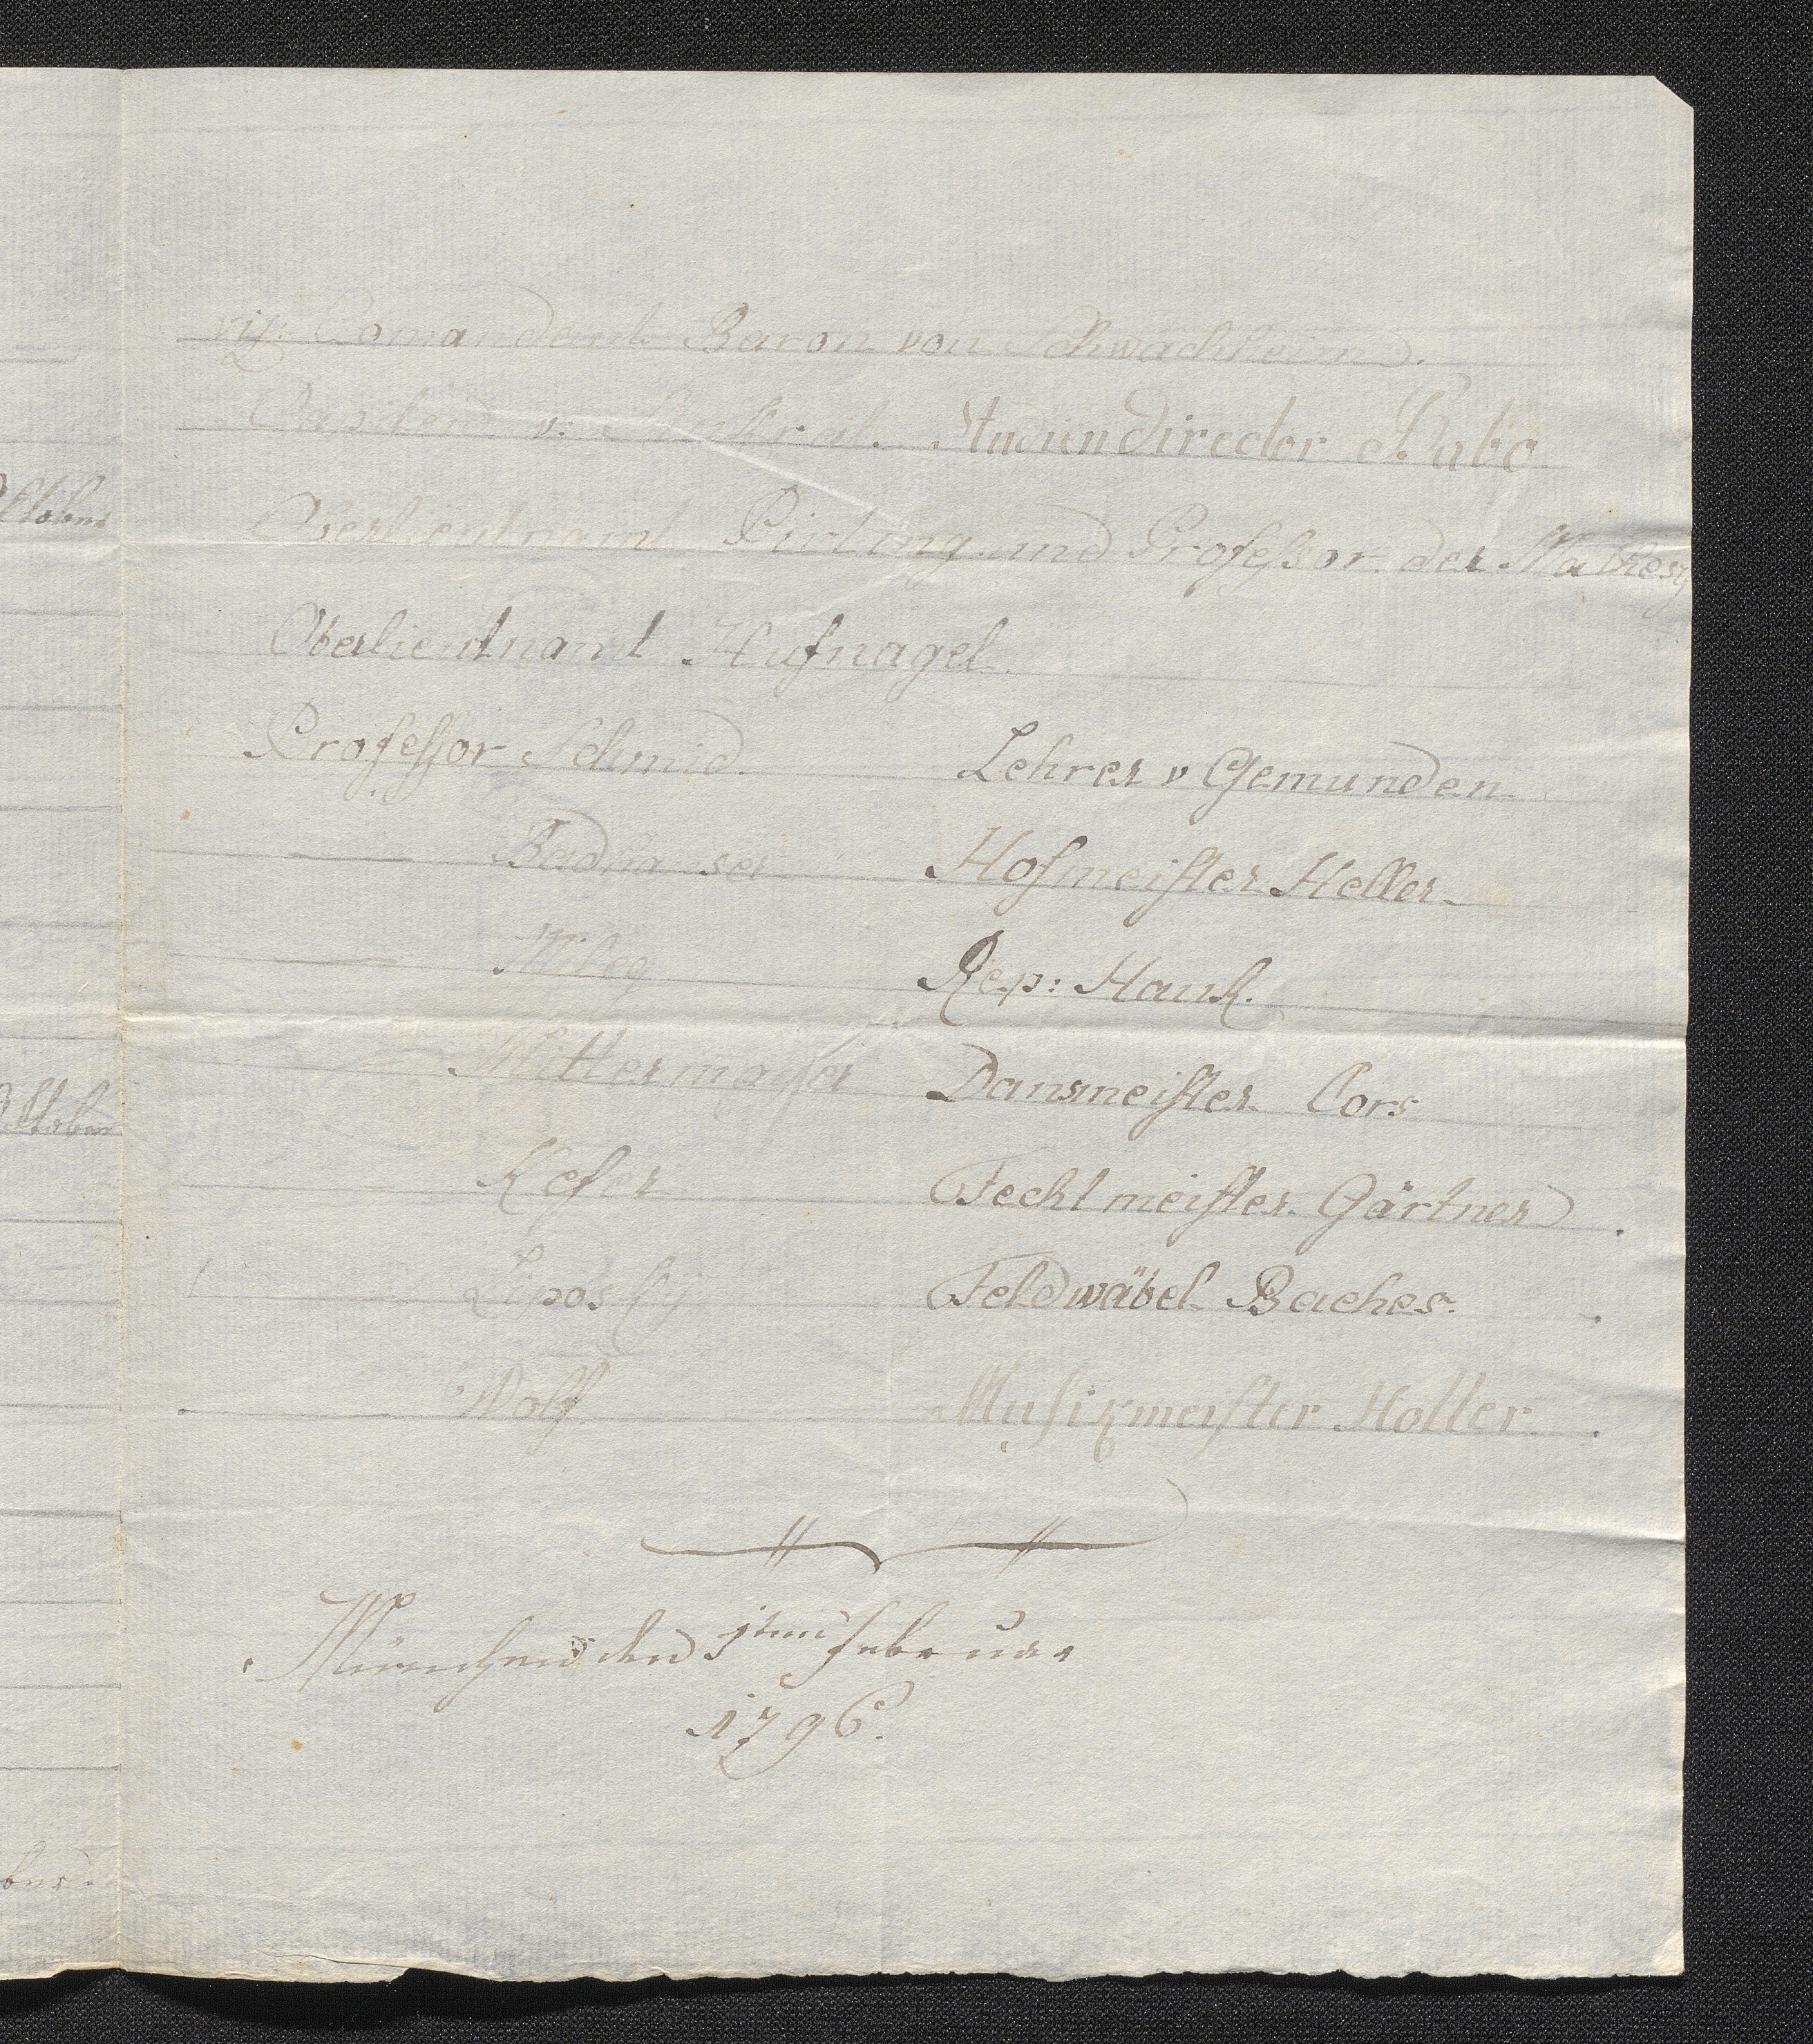 vix: Comandant Baron von Schwachheim.
v: Studien director Babo
Oberlieutnant Pirling und Professor der Mathesis
Oberlieutnant Hufnagel.
Professor Schmid. Lehrer v Gemunden
Hofmeister Heller.
Rep: Hauk.
Mittermayer Danzmeister Cors
Kefer Fechtmeister Gärtner
Liposky Feldwäbel Bacher.
Wolf Musikmeister Holler
München den 1ten Februar
1796.